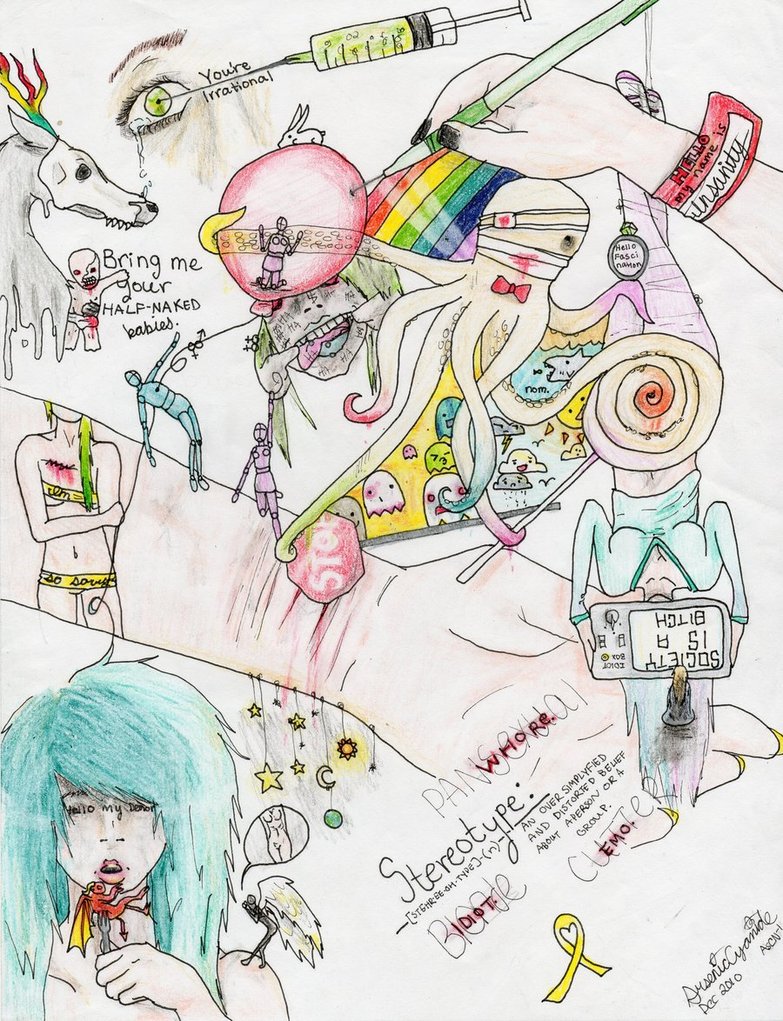 You're
Irrational
HELLO
my name is
Insanity
Hello
Fasci
nation
Bring me
your
HALF-NAKED
babies.
HA
HA
HA
nom.
STOP
so sorry
SOCIETY
IS A
BITCH
IDIOT
BOX
Hello My
PANSEXUAL
WHORE.
Stereotype:
-[STEHREE-OH-TYPE]-(n)-
AN OVERSIMPLYFIED
AND DISTORTED BELIEF
ABOUT A PERSON OR A
GROUP.
EMO.
IDIOT.
ArsenicCyanide
Dec 2010